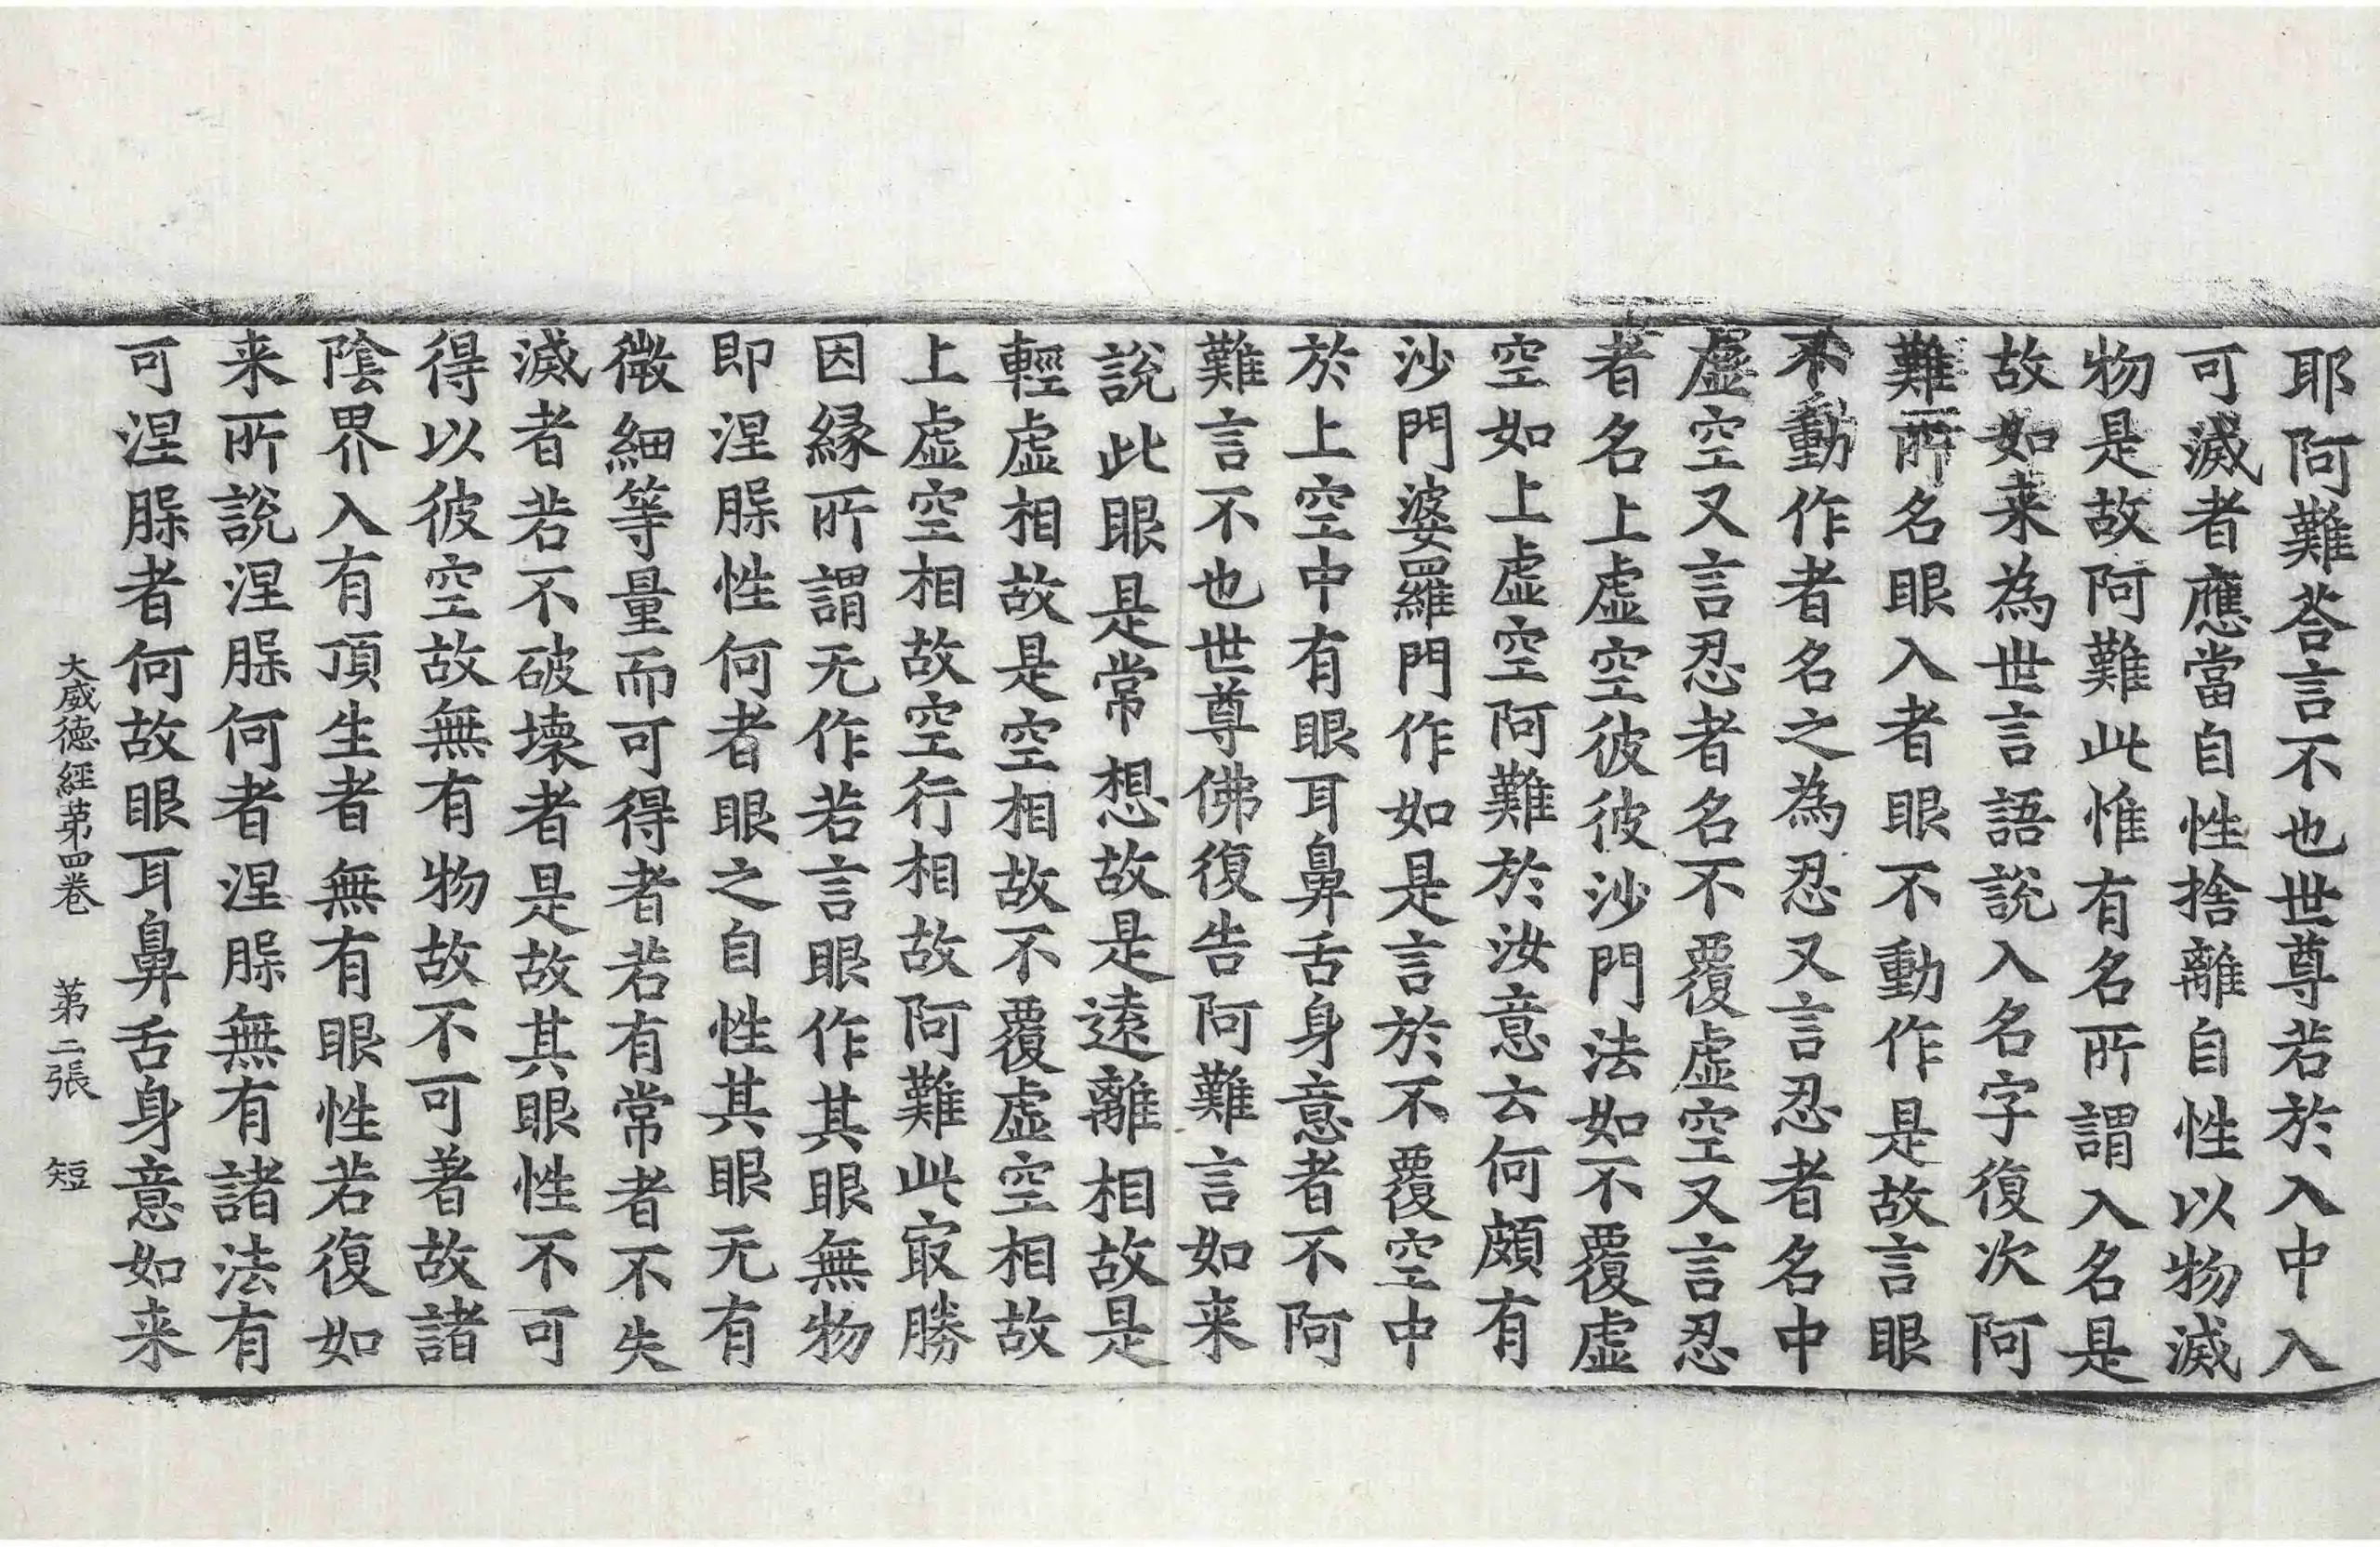 耶阿難荅言不也世尊若於入中入
可滅者應當自性捨離自性以物滅
物是故阿難此惟有名所謂入名是
故如来為世言語說入名字復次阿
難所名眼入者眼不動作是故言眼
不動作者名之為忍又言忍者名中
虛空又言忍者名不覆虛空又言忍
者名上虛空彼彼沙門法如不覆虛
空如上虛空阿難於汝意云何頗有
沙門婆羅門作如是言於不覆空中
於上空中有眼耳鼻舌身意者不阿
難言不也世尊佛復告阿難言如来
說此眼是常想故是遠離相故是
輕虛相故是空相故不覆虛空相故
上虛空相故空行相故阿難此㝡勝
因緣所謂无作若言眼作其眼無物
即涅槃性何者眼之自性其眼无有
微細等量而可得者若有常者不失
滅者若不破壞者是故其眼性不可
得以彼空故無有物故不可著故諸
陰界入有頂生者無有眼性若復如
来所說涅槃何者涅槃無有諸法有
可涅槃者何故眼耳鼻舌身意如来
大威德經第四卷 第二張 短